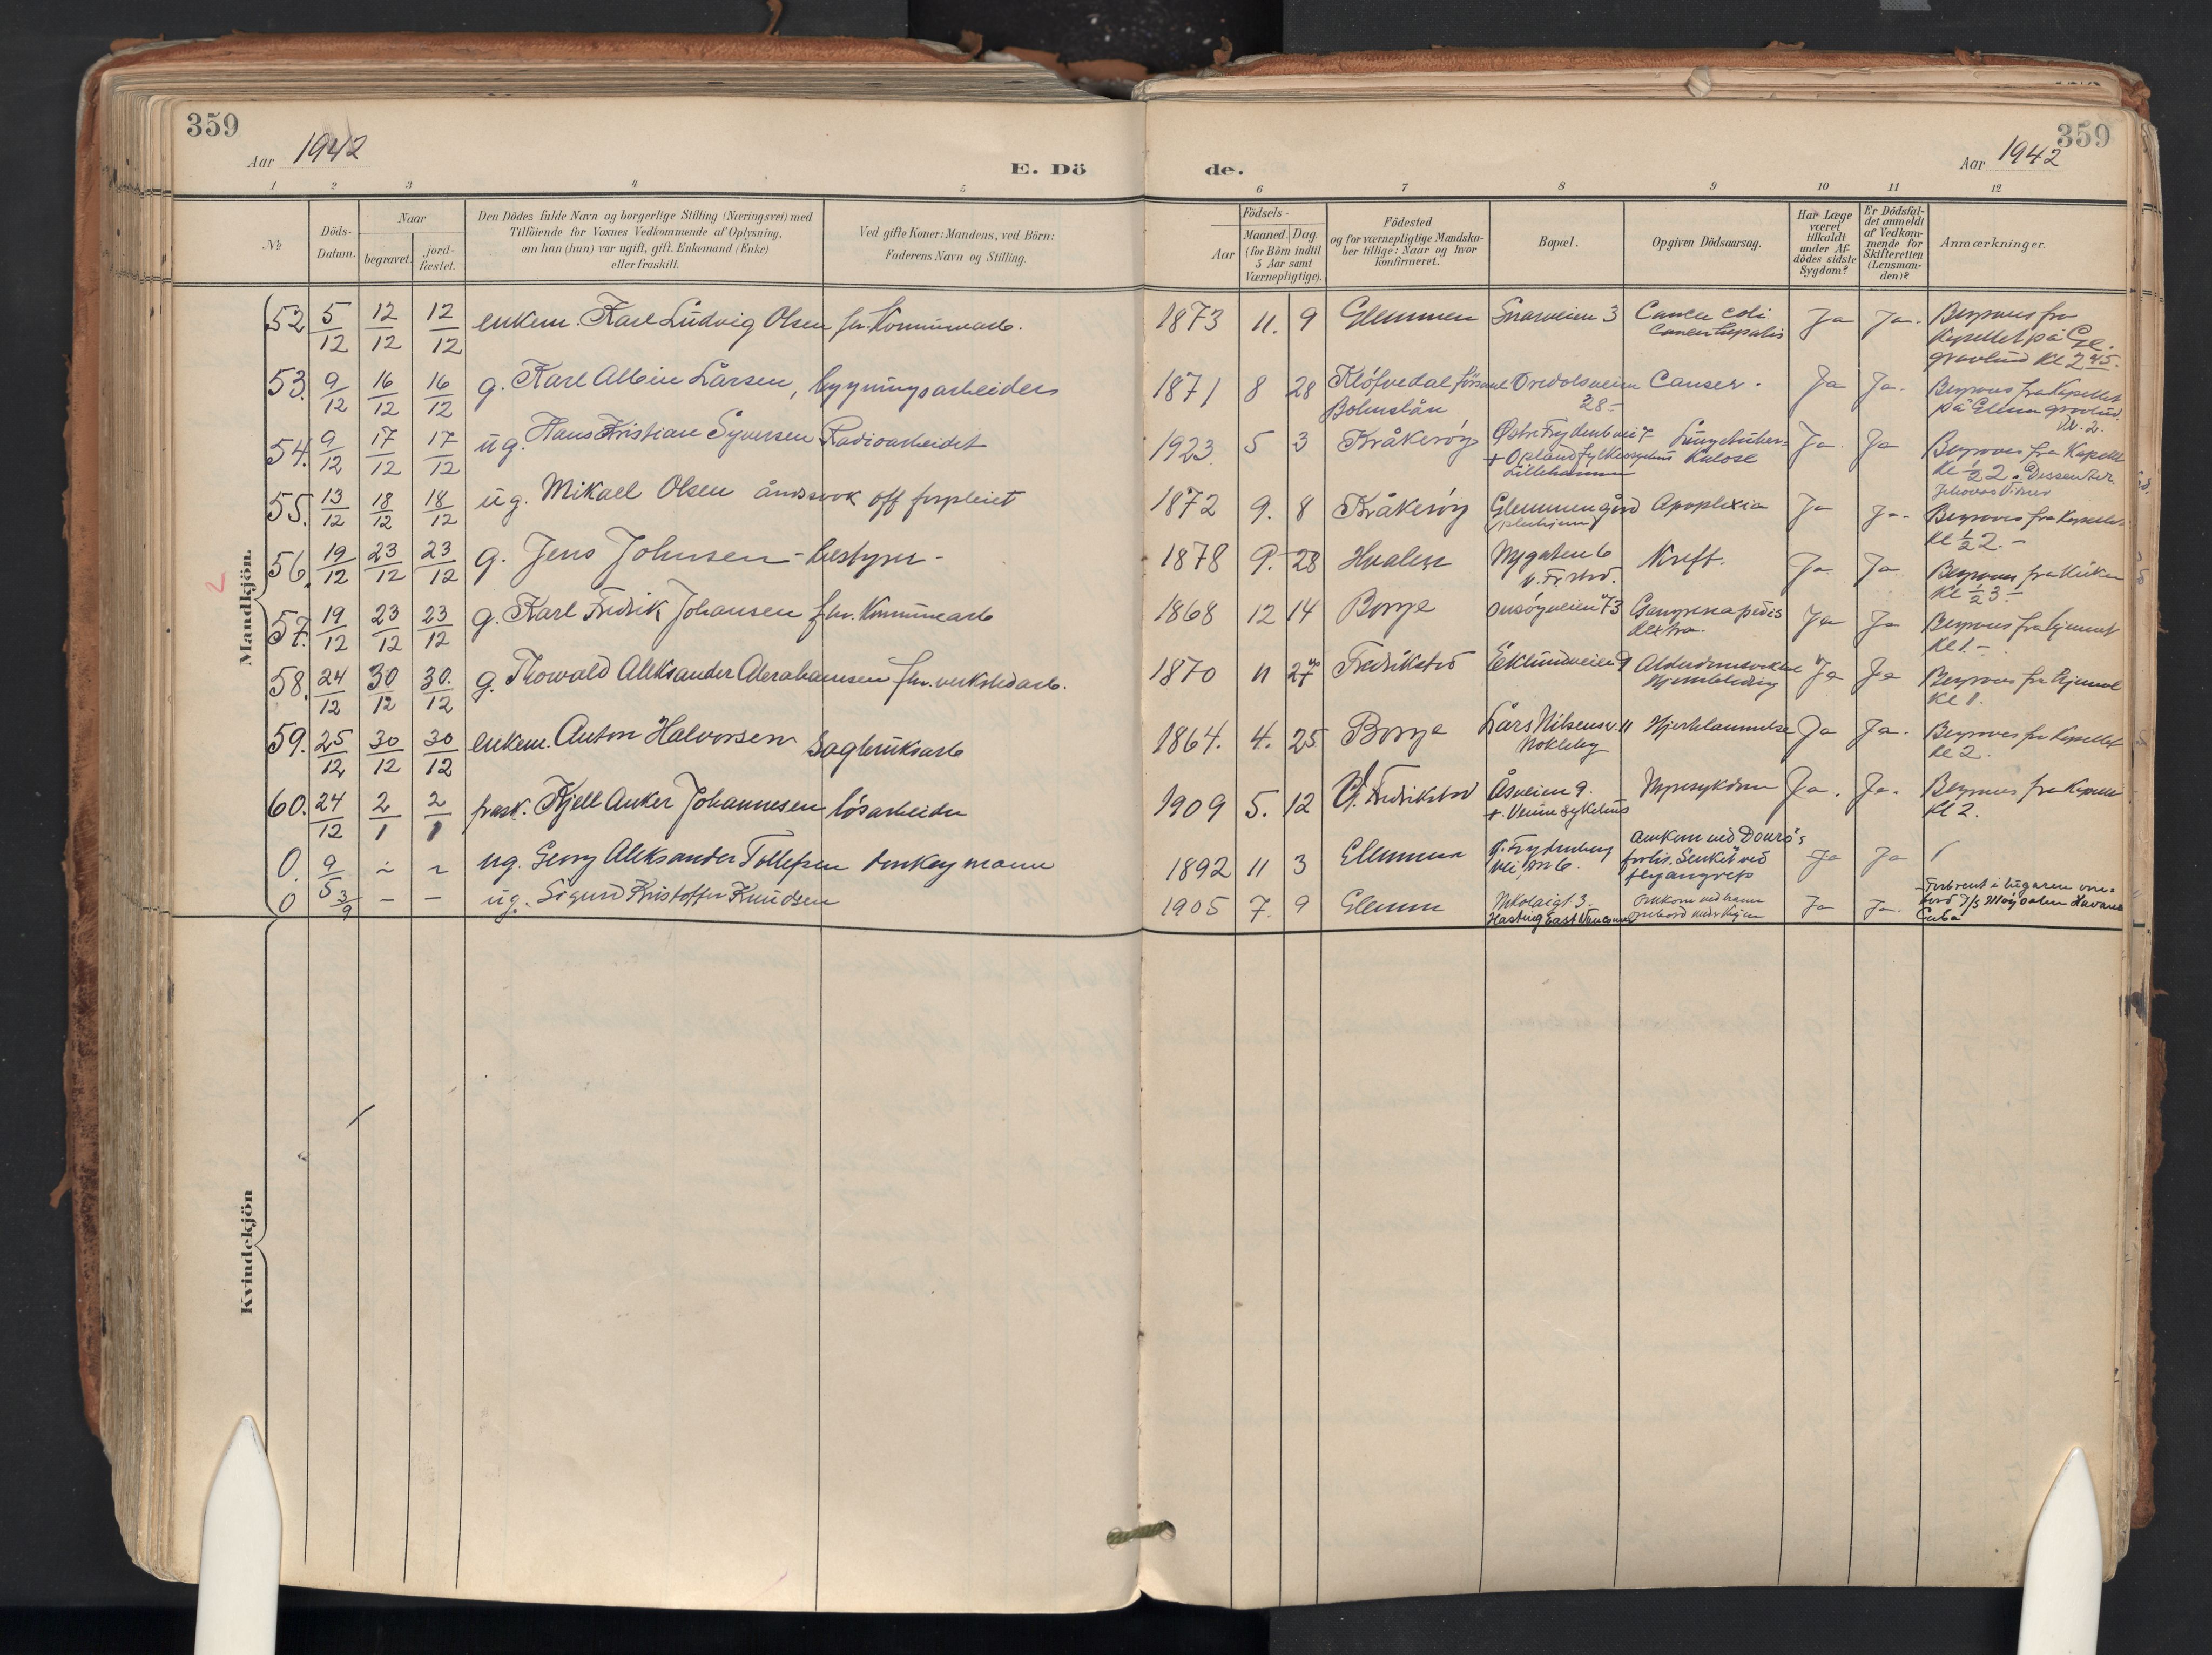 359
359
Aar 1942
Aar 1942
E. Dö
de.
1 2 3 4 5 6 7 8 9 10 11 12
№
Döds-
Datum.
Naar
begravet.
jord-
fæstet.
Den Dödes fulde Navn og borgerlige Stilling (Næringsvei) med
Tilföiende for Voxnes Vedkommende af Oplysning,
om han (hun) var ugift, gift, Enkemand (Enke)
eller fraskilt.
Ved gifte Koner: Mandens, ved Börn:
Faderens Navn og Stilling.
Födsels-
Aar
Maaned. Dag.
(for Börn indtil
5 Aar samt
Værnepligtige).
Födested
og for værnepligtige Mandska-
ber tillige: Naar og hvor
konfirmeret.
Bopæl.
Opgiven Dödsaarsag.
Har Læge
været
tilkaldt
under Af-
dödes sidste
Sygdom?
Er Dödsfal-
det anmeldt
af Vedkom-
mende for
Skifteretten
(Lensman-
den)?
Anmærkninger.
Mandkjön.
2
52 5/12 12/12 12/12 enkem. Karl Ludvig Olsen fhv. Kommunearb. 1873 11. 9 Glemmen Snarveien 3 Cancer coli Ja Ja. Begraves fra
Kapellet på Gl.
gravlund Kl 2 45.
53. 9/12 16/12 16/12 g. Karl Albin Larsen, bygningsarbeider 1871 8 28 Klöfvedal församl Oredalsveien Canser. Ja Ja. Begraves fra Kapellet
Bohuslän 28-
på Glem gravlund
Kl. 2.
54. 9/12 17/12 17/12 ug. Hans Kristian Syversen Radioarbeider 1923 5 3 Kråkeröy Østre Frydenb vei 7 Lungetuber- Ja Ja Begraves fra Kapellet
+ Opland fylkessykehus kulose
Lillehammer
Kl ½ 2. Dissenter.
Jehovas Vidner
55. 13/12 18/12 18/12 ug. Mikael Olsen åndssvak off forpleiet 1872 9. 8 Kråkeröy Glemmengård Apoplexia Ja Ja. Begraves fra Kapellet
pleiehjem
Kl ½ 2. -
56. 19/12 23/12 23/12 g. Jens Johnsen - bestyrer - 1878 9. 28 Hvaler Nygaten 6 Kreft. Ja Ja Begraves fra Kirken
V. Fr.stad.
Kl ½ 3. -
57. 19/12 23/12 23/12 g. Karl Fredrik Johansen fhv. Kommunearb 1868 12 14 Borge Onsöyveien 73 Gangrena pedis Ja Ja Begraves fra hjemmet
dextra.
Kl 1. -
58. 24/12 30/12 30./12 g. Thorvald Aleksander Abrahamsen fhv. verkstedarb. 1870 11 27 Fredrikstad Eklundveien 9 Alderdomssvakhet Ja Ja Begraves fra hjemmet
Hjerneblödning
Kl 1.
59. 25/12 30/12 30/12 enkem. Anton Halvorsen Sagbruksarb 1864. 4. 25 Borge Lars Nilsensv. 11 Hjertelammelse Ja Ja. Begraves fra Kapellet
Nökleby
Kl 2.
60. 24/12 2/1 2/1 frask. Kjell Anker Johannesen lösarbeider 1909 5. 12 V. Fredrikstad Åsveien 9. Nyresykdom Ja. Ja. Begraves fra Kapellet
+. Veum sykehus
Kl 2.
0. 9/5 ~ ~ ug. Georg Aleksander Tollefsen donkeymann 1892 11 3 Glemmen V. Frydenberg omkom ved Douro's Ja Ja
vei nr 6. forlis. Senket ved
flyangrep
0 3/9 - - ug. Sigurd Kristoffer Knudsen 1905 7. 9 Glemm Nikolaigt 3. omkom ved brann Ja Ja. Forbrent i lugaren om-
Hasting East Vancouver ombord
bord
Havana
Cuba
Kvindekjön